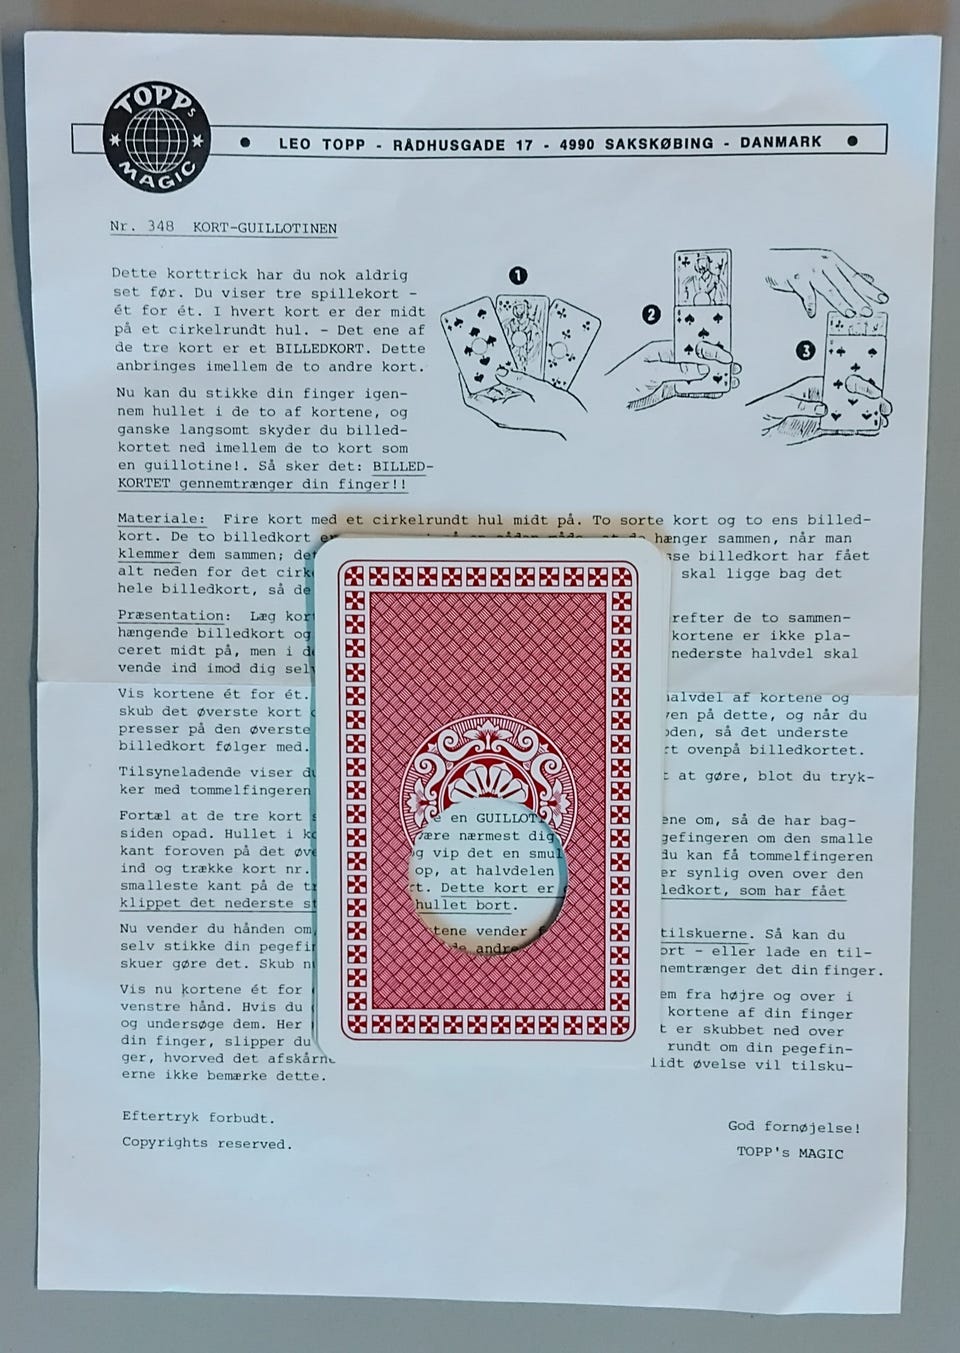 TOPPs
MAGIC
LEO TOPP - RÅDHUSGADE 17 - 4990 SAKSKØBING - DANMARK
Nr. 348 KORT-GUILLOTINEN
Dette korttrick har du nok aldrig
set før. Du viser tre spillekort -
ét for ét. I hvert kort er der midt
på et cirkelrundt hul. - Det ene af
de tre kort er et BILLEDKORT. Dette
anbringes imellem de to andre kort.
1
2
3
Nu kan du stikke din finger igen-
nem hullet i de to af kortene, og
ganske langsomt skyder du billed-
kortet ned imellem de to kort som
en guillotine!. Så sker det: BILLED-
KORTET gennemtrænger din finger!!
Materiale: Fire kort med et cirkelrundt hul midt på. To sorte kort og to ens billed-
kort. De to billedkort hænger sammen, når man
klemmer dem sammen; billedkort har fået
alt neden for det skal ligge bag det
hele billedkort, så
Præsentation: Læg de to sammen-
hængende billedkort og kortene er ikke pla-
ceret midt på, men i nederste halvdel skal
vende ind imod dig
Vis kortene ét for ét. halvdel af kortene og
skub det øverste kort på dette, og når du
presser på den øverste så det underste
billedkort følger med. ovenpå billedkortet.
Tilsyneladende viser at gøre, blot du tryk-
ker med tommelfingeren
Fortæl at de tre kort om, så de har bag-
siden opad. Hullet i en GUILLOT pegefingeren om den smalle
kant foroven på det være nærmest dig du kan få tommelfingeren
ind og trække kort nr. vip det en smul er synlig oven over den
smalleste kant på de op, at halvdelen billedkort, som har fået
klippet det nederste Dette kort er
hullet bort.
Nu vender du hånden om, kortene vender tilskuerne. Så kan du
selv stikke din andre kort - eller lade en til-
skuer gøre det. Skub gennemtrænger det din finger.
Vis nu kortene ét for fra højre og over i
venstre hånd. Hvis du kortene af din finger
og undersøge dem. Her er skubbet ned over
din finger, slipper du rundt om din pegefin-
ger, hvorved det øvelse vil tilsku-
erne ikke bemærke dette.
Eftertryk forbudt.
Copyrights reserved.
God fornøjelse!
TOPP's MAGIC